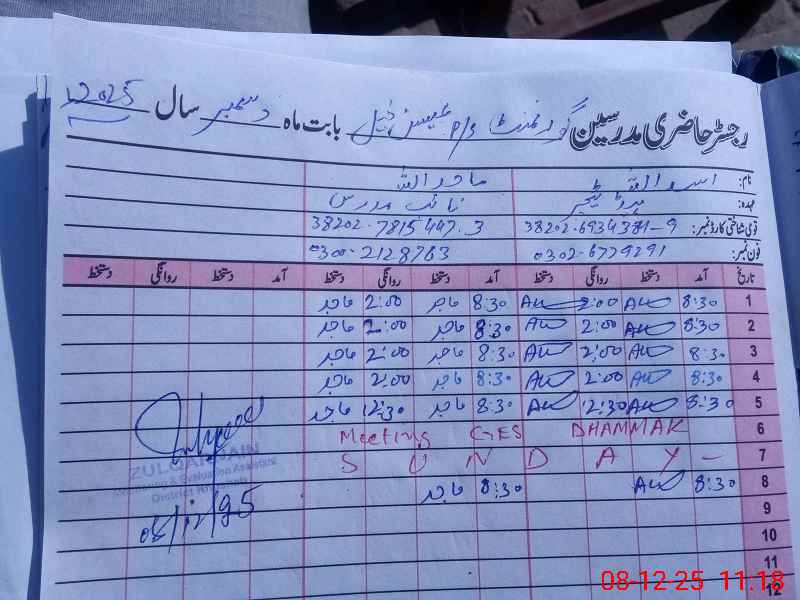 رجسٹر حاضری مدرسین گورنمنٹ P/S عیسیٰ خیل بابت ماہ دسمبر سال 2025
نام: اسد اللہ ماجد اللہ
عہدہ: ہیڈ ٹیچر نائب مدرس
قومی شناختی کارڈ نمبر: 38202-6934381-9 38202-7815447-3
فون نمبر: 0302-6779291 0300-2128763
تاریخ آمد دستخط روانگی دستخط آمد دستخط روانگی دستخط آمد دستخط روانگی دستخط
1 8:30 2:00 8:30 ماجد 2:00 ماجد
2 8:30 2:00 8:30 ماجد 2:00 ماجد
3 8:30 2:00 8:30 ماجد 2:00 ماجد
4 8:30 2:00 8:30 ماجد 2:00 ماجد
5 8:30 12:30 8:30 ماجد 12:30 ماجد
6 Meeting GES DHAMMAK
7 S U N D A Y -
8 8:30 8:30 ماجد
9
10
11
12
ZULQARNAIN
Monitoring & Evaluation Assistant
District Khushab
08/12/25
08-12-25 11:18